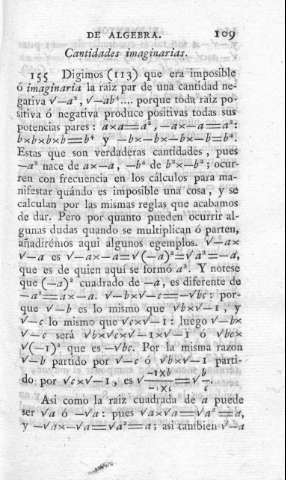 DE ALGEBRA. 109
Cantidades imaginarias.
155 Digimos (113) que era imposible
ó imaginaria la raiz par de una cantidad ne-
gativa √−a², √−ab⁴.... porque toda raiz po-
sitiva ó negativa produce positivas todas sus
potencias pares: a×a=a², −a×−a=a²:
b×b×b×b=b⁴ y −b×−b×−b×−b=b⁴.
Estas que son verdaderas cantidades, pues
−a² nace de a×−a, −b⁴ de b²×−b²; ocur-
ren con frecuencia en los cálculos para ma-
nifestar quándo es imposible una cosa, y se
calculan por las mismas reglas que acabamos
de dar. Pero por quanto pueden ocurrir al-
gunas dudas quando se multiplican ó parten,
añadirémos aqui algunos egemplos. √−a×
√−a es √−a×−a=√(−a)²=√a²=−a,
que es de quien aquí se formó a². Y notese
que (−a)² cuadrado de −a, es diferente de
−a²=a×−a. √−b×√−c=−√bc: por-
que √−b es lo mismo que √b×√−1, y
√−c lo mismo que √c×√−1: luego √−b×
√−c será √b×√c×√−1×√−1 ó √bc×
√(−1)² que es −√bc. Por la misma razon
√−b partido por √−c ó √b×√−1 parti-
do por √c×√−1, es √−1×b/−1×c=√b/c.
Asi como la raiz cuadrada de a puede
ser √a ó −√a: pues √a×√a=√a²=a,
y −√a×−√a=√a²=a; asi tambien √−a